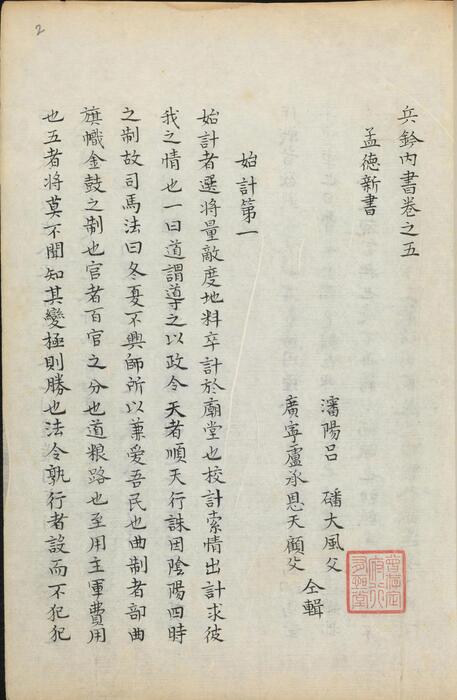 兵鈐內書卷之五
孟德新書
瀋陽呂 磻大風父
廣寧盧承恩天顧父
仝輯
始計第一
始計者選將量敵度地料卒計於廟堂也校計索情出計求彼
我之情也一曰道謂導之以政令天者順天行誅因陰陽四時
之制故司馬法曰冬夏不興師所以兼爱吾民也曲制者部曲
旗幟金鼓之制也官者百官之分也道粮路也至用主軍費用
也五者將莫不聞知其變極則勝也法令孰行者設而不犯犯
2